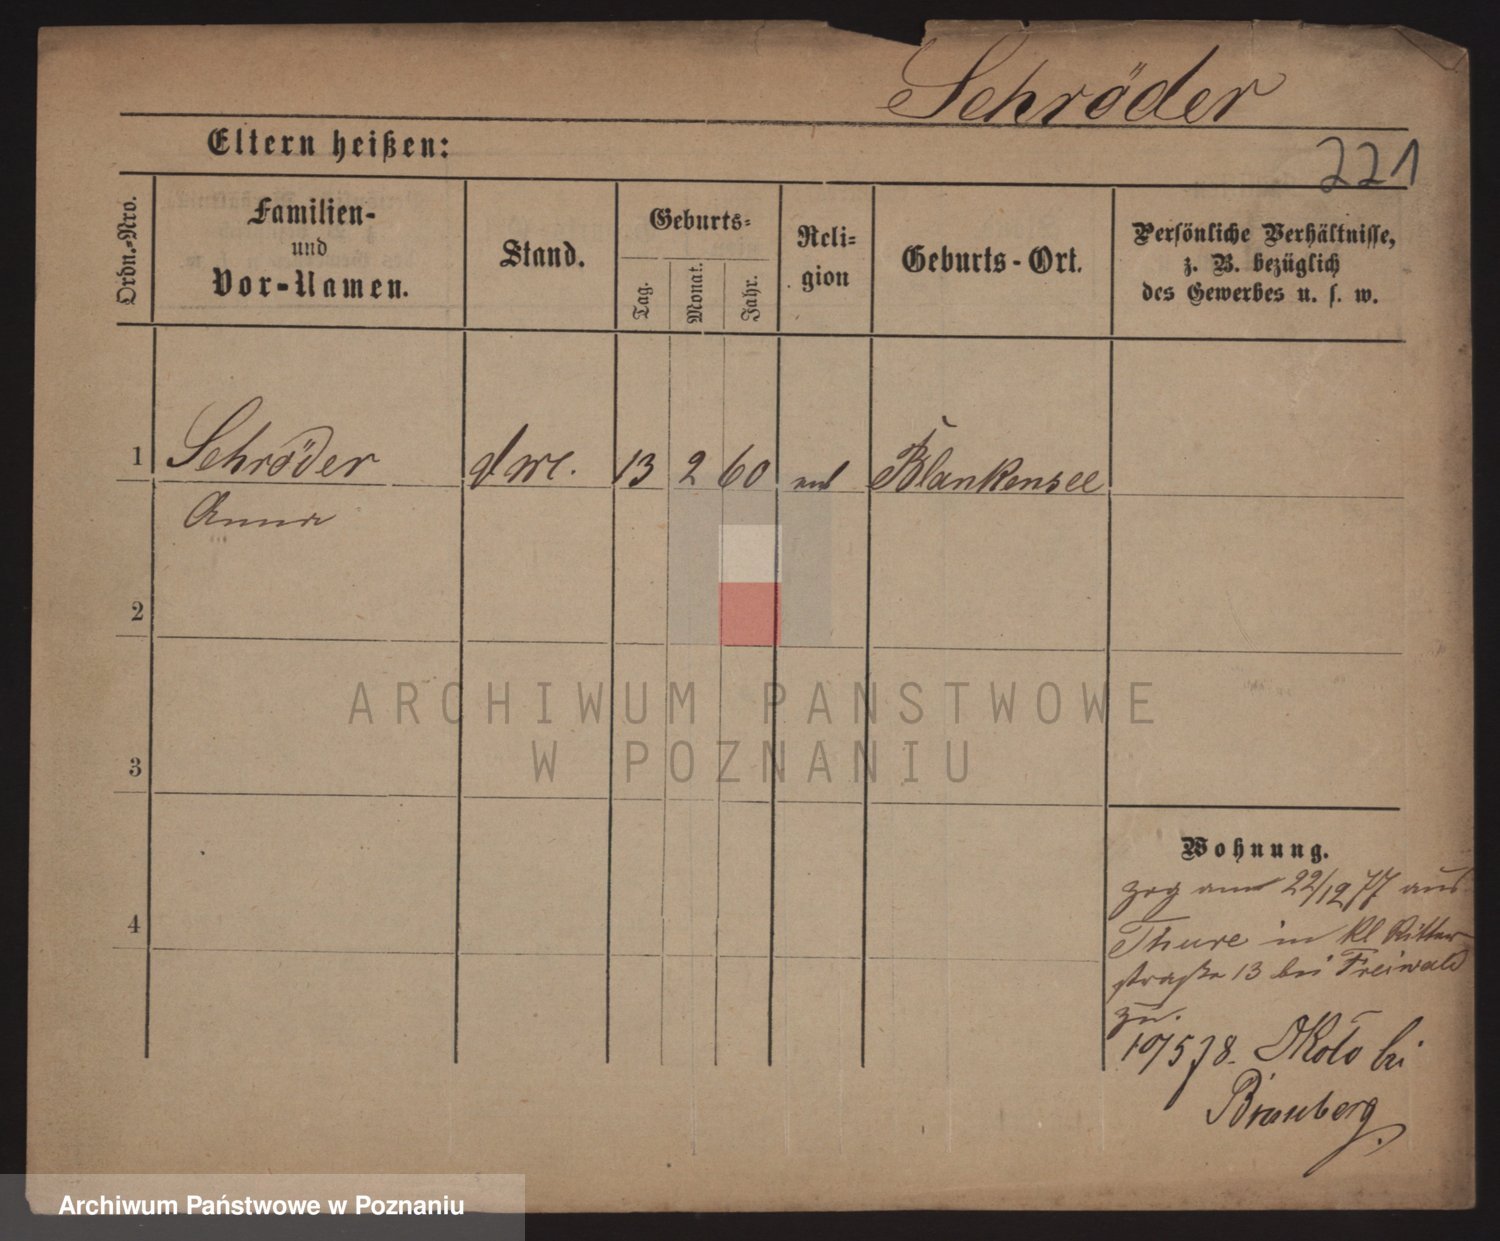 Schröder
221
Eltern heißen:
Ordn.-Nro.
Familien-
und
Vor-Namen.
Stand.
Geburts-
Tag.
Monat.
Jahr.
Reli-
gion
Geburts-Ort.
Persönliche Verhältnisse,
z. B. bezüglich
des Gewerbes u. s. w.
1
Schröder
13
2
60
Blankensee
Anna
2
ARCHIWUM PAŃSTWOWE
W POZNANIU
3
Wohnung.
zog am 22/12 77 aus
Thure in Kl Ritter
straße 13 bei Freiwald
zu.
bei
Brauberg
4
Archiwum Państwowe w Poznaniu